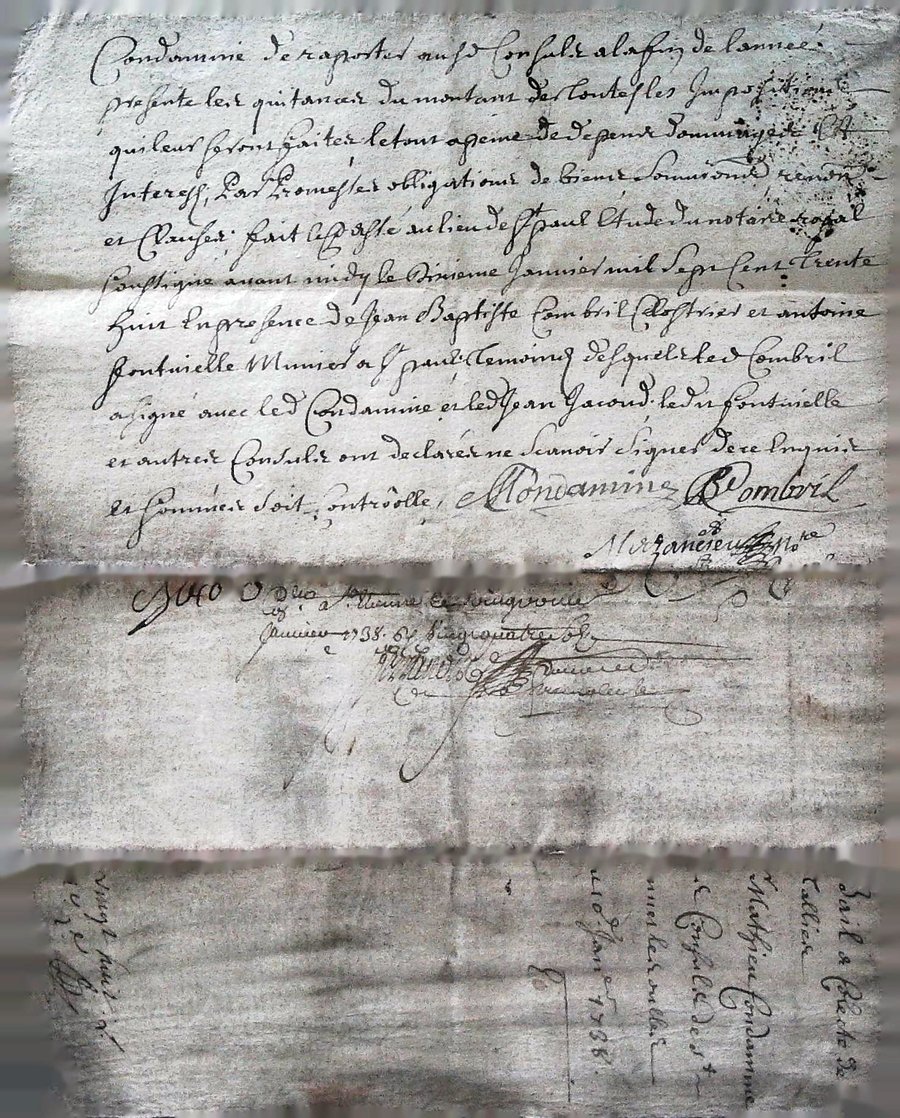 Condamine de raporter aux d Consuls a la fin de lannee
presente les quitances du montant des toutes les Impositions
qui leur seront faites le tout a peine de depens dommages Et
Interess, Par Promesses obligations de biens soumisons renon
et Clauses. fait & passé au lieu de St paul Etude du notaire royal
soussigné avant midy le dixieme Janvier mil sept cent trente
huit En presence de Jean Baptiste Combril Clostrier et antoine
fontvielle Munier a St paul temoins desquels led Combril
a signé avec led Condamine et led Jean Jacond. led fontvielle
et autres Consuls ont declarés ne scavoir signer de ce Enquis
et sommés soit Controolle, MCondamine BCombril
No re
a St
Janvier 1738. vingt quatre sols
Bail a Colecte de
tallies
Mathieu Condamine
Consuls de St
10 Janer 1738.
vingt